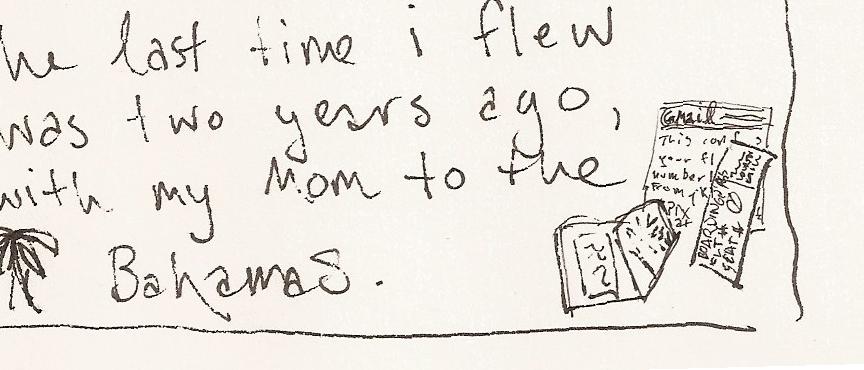 he last time i flew
was two years ago,
with my Mom to the
Bahamas.
Gmail
This con
your fl
number
From JK
BOARDING
FLT #
SEAT #